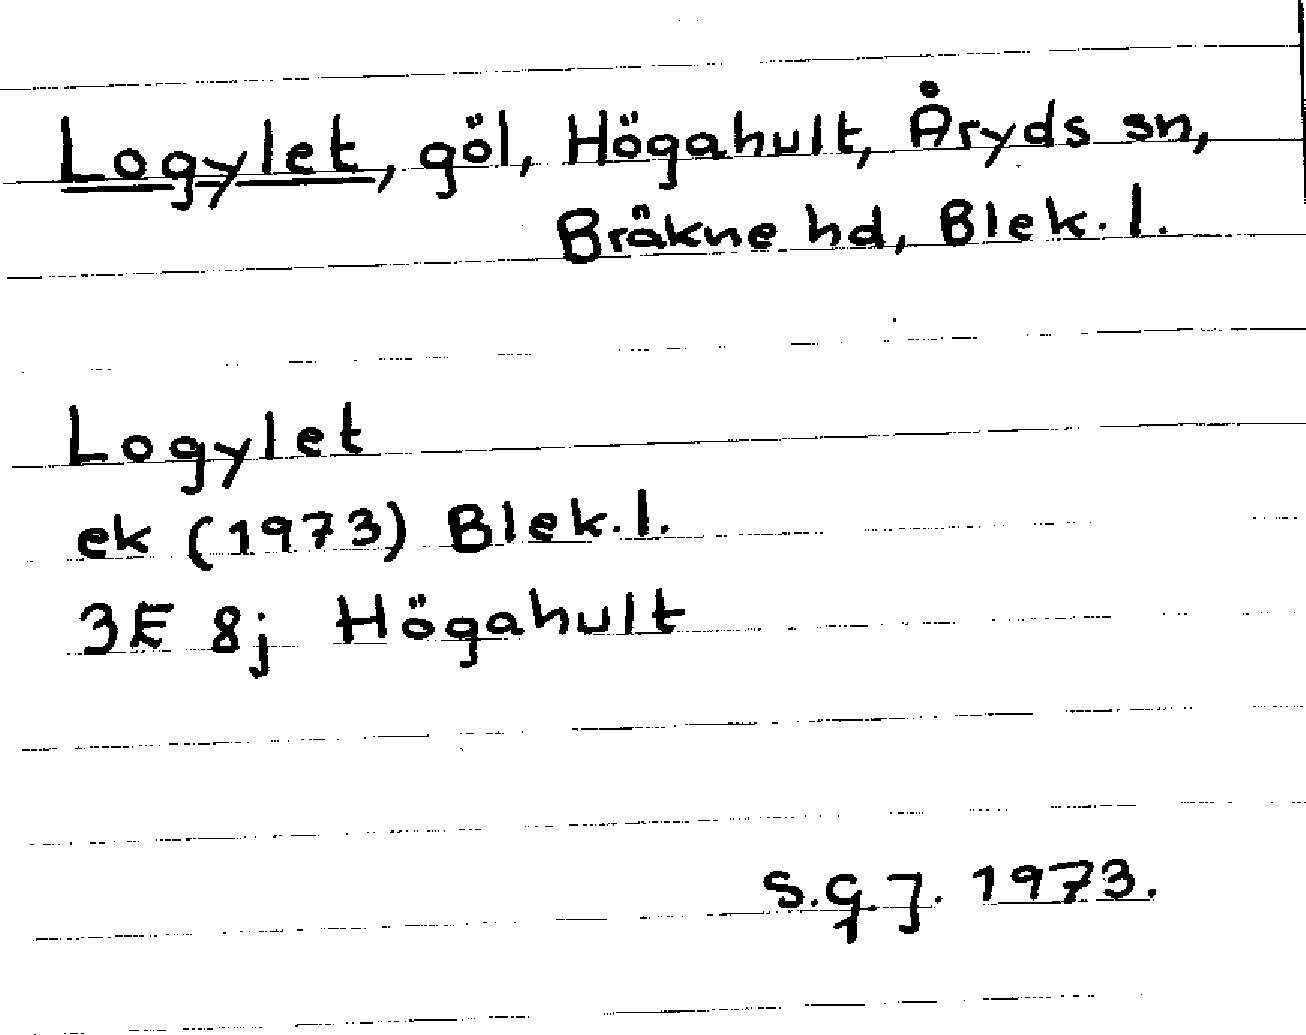 Logylet, göl, Högahult, Åryds sn,
Bräkne hd, Blek. l.
Logylet
ek (1973) Blek. l.
3E 8j Högahult
S.G.J. 1973.